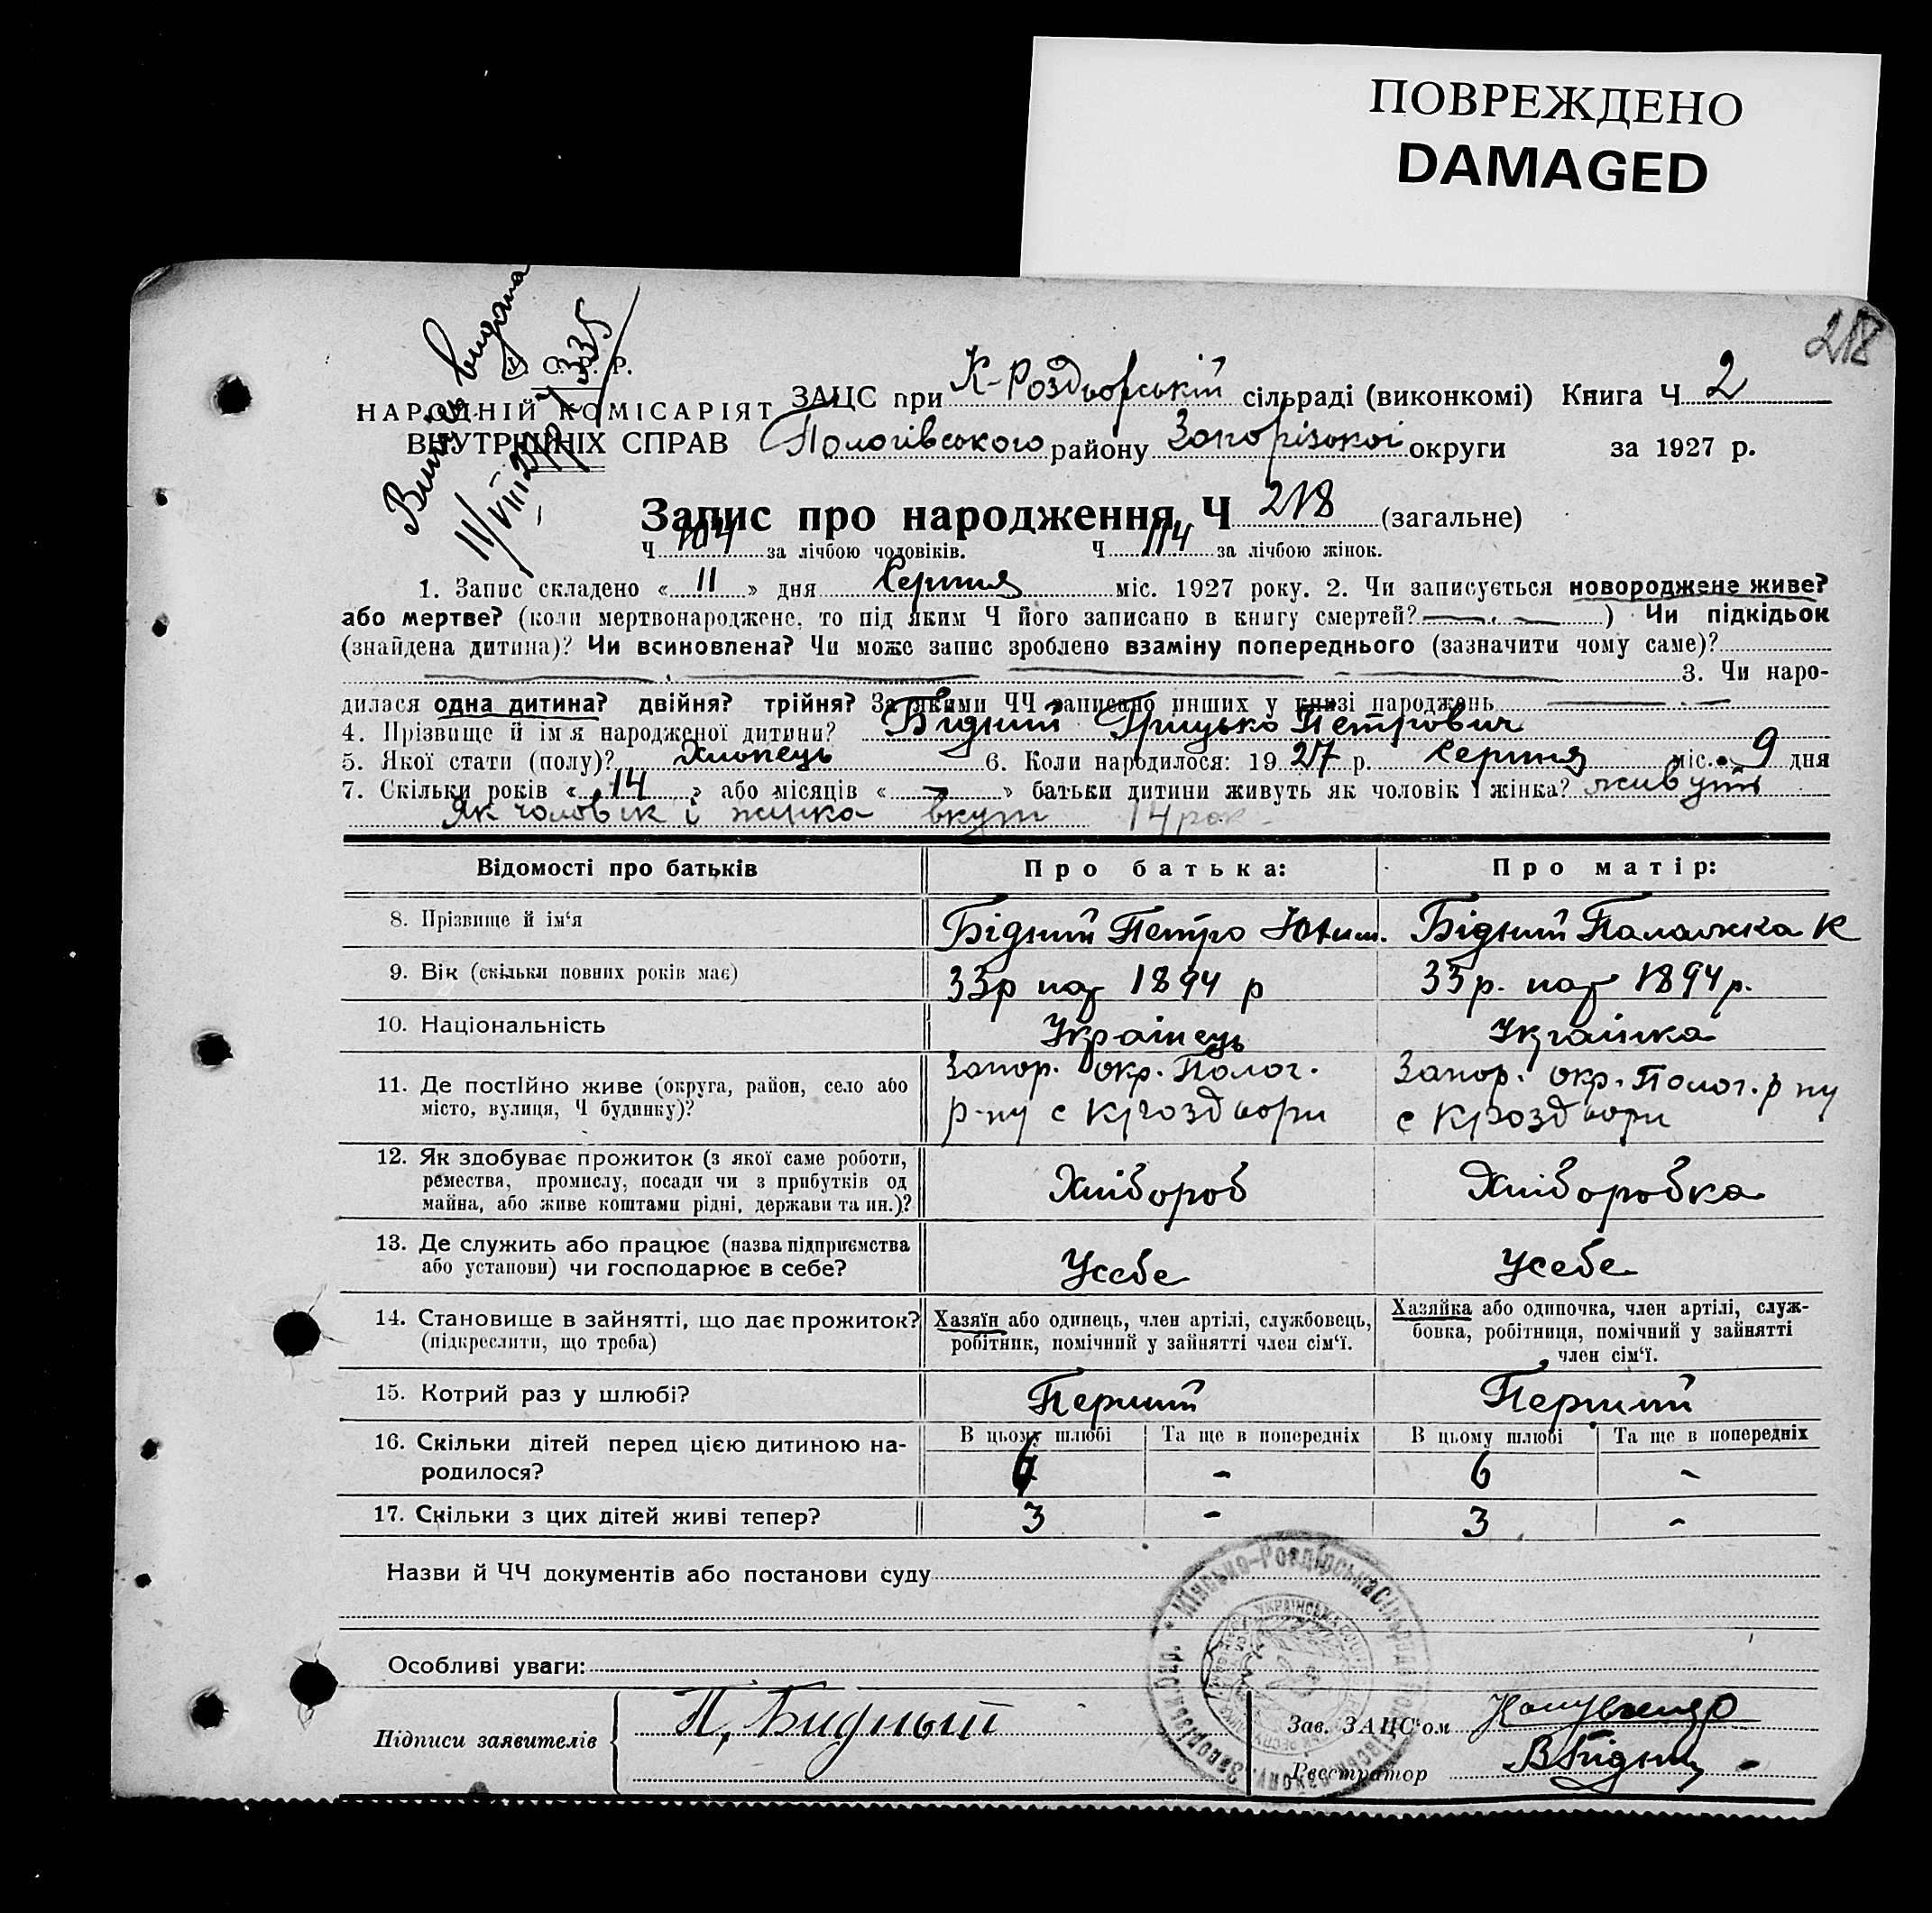 ПОВРЕЖДЕНО
DAMAGED
218
Випись видана
У. С. Р. Р.
НАРОДНІЙ КОМІСАРІЯТ
ВНУТРІШНІХ СПРАВ
ЗАЦС при К-Роздорській сільраді (виконкомі) Книга Ч 2
Пологівського району Запорізької округи за 1927 р.
Запис про народження Ч 218 (загальне)
Ч 104 за лічбою чоловіків. Ч 114 за лічбою жінок.
1. Запис складено « 11 » дня Серпня міс. 1927 року. 2. Чи записується новороджене живе?
або мертве? (коли мертвонароджене, то під яким Ч його записано в книгу смертей? — . — ) Чи підкідьок
(знайдена дитина)? Чи всиновлена? Чи може запис зроблено взаміну попереднього (зазначити чому саме)?
3. Чи наро-
дилася одна дитина? двійня? трійня? За якими ЧЧ записано инших у книзі народжень
4. Прізвище й ім'я народженої дитини? Бідний Грицько Петрович
5. Якої стати (полу)? Хлопець 6. Коли народилося: 1927 р. Серпня міс. 9 дня
7. Скільки років « 14 » або місяців « — » батьки дитини живуть як чоловік і жінка? живуть
Як чоловік і жинка вкупі 14 рок
Відомості про батьків
Про батька:
Про матір:
8. Прізвище й ім‘я
Бідний Петро Юхим.
Бідний Палажка К
9. Вік (скільки повних років має)
33р нар 1894 р
33р. нар 1894 р.
10. Національність
Українець
Українка
11. Де постійно живе (округа, район, село або
місто, вулиця, Ч будинку)?
Запор. окр. Полог.
р-ну с Кроздори
Запор. окр. Полог. р ну
с Кроздори
12. Як здобуває прожиток (з якої саме роботи,
ремества, промислу, посади чи з прибутків од
майна, або живе коштами рідні, держави та ин.)?
Хлібороб
Хліборобка
13. Де служить або працює (назва підприємства
або установи) чи господарює в себе?
Усебе
Усебе
14. Становище в зайнятті, що дає прожиток?
(підкреслити, що треба)
Хазяїн або одинець, член артілі, службовець,
робітник, помічний у зайнятті член сім‘ї.
Хазяйка або одиночка, член артілі, служ-
бовка, робітниця, помічний у зайнятті
член сім‘ї.
15. Котрий раз у шлюбі?
Перший
Перший
16. Скільки дітей перед цією дитиною на-
родилося?
В цьому шлюбі
Та ще в попередніх
В цьому шлюбі
Та ще в попередніх
6
-
6
-
17. Скільки з цих дітей живі тепер?
3
-
3
-
Назви й ЧЧ документів або постанови суду
Особливі уваги:
Підписи заявителів
П. Бидный
Зав. ЗАЦС‘ом
Реєстратор
В Бідний